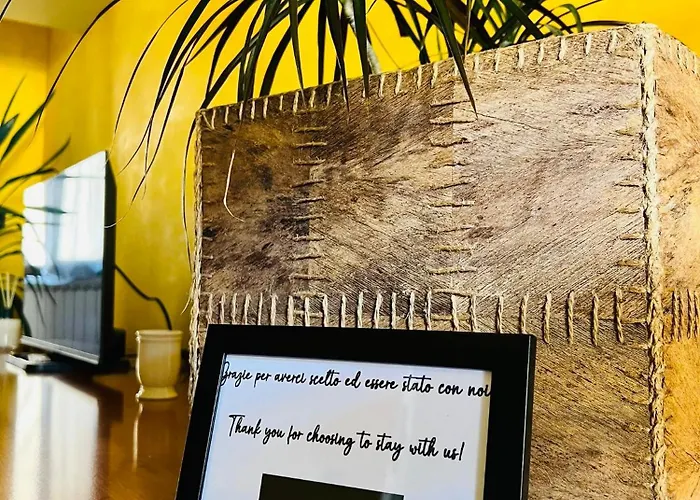 Grazie per averci scelto ed essere stato con noi
Thank you for choosing to stay with us!